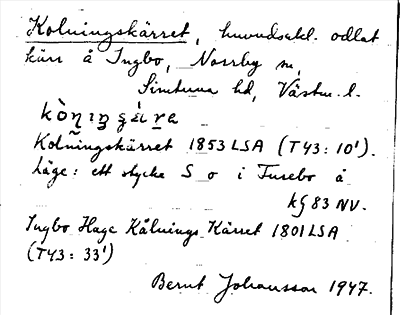 Kolningskärret, huvudsakl. odlat
kärr å Ingbo, Norrby sn,
Simtuna hd, Västm. l.
Kolñingskärret 1853 LSA (T43: 10').
Läge: ett stycke S o i Fusebo å
kg 83 NV.
Ingbo Hage Kålnings Kärret 1801 LSA
(T43: 33')
Bernt Johansson 1947.